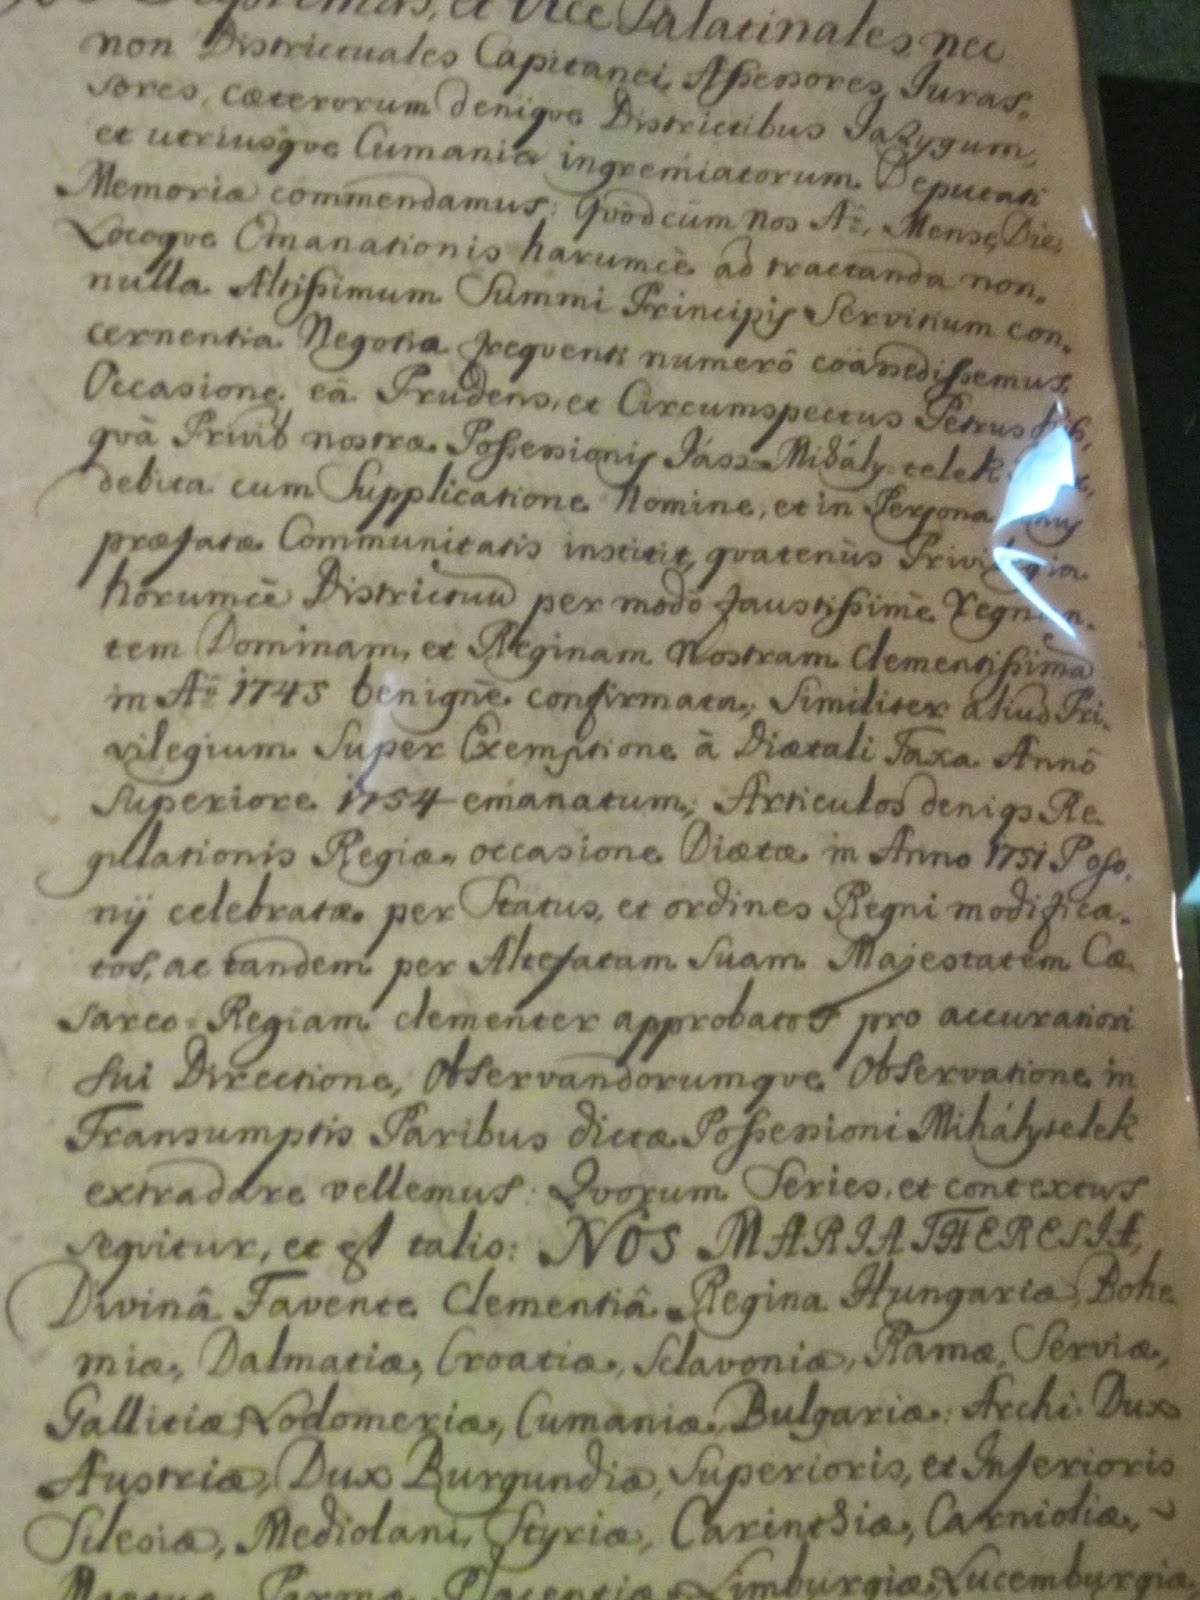 Supremus, et Vice Palatinales nec
non Districtuales Capitanei, Assessores, Juras-
sores, cæterorum denique Districtibus Jazygum,
et utriusque Cumaniæ ingremiatorum Deputati
Memoriæ commendamus: Quòd cùm Nos Aô, Mense, Die,
Locoque Emanationis harumcè ad tractanda non-
nulla Altissimum Summi Principis Servitium con-
cernentia Negotia frequenti numerô cöassedissemus,
Occasione eâ Prudens, et Circumspectus Petrus
quà Privil nostræ Possessionis Jász-Mihály-telek
debita cum Supplicatione Nomine, et in Persona
præfatæ Communitatis institit, quatenùs Privilegia
horumcè Districtuum per modò faustissimè Regnan-
tem Dominam, et Reginam Nostram Clementissima
in Aô 1745 benignè confirmata, Similiter aliud Pri-
vilegium Super Exemptione à Diætali Taxa Annô
Superiore 1754 emanatum, Articulos deniqs Re-
gulationis Regiæ, occasione Diætæ in Anno 1751 Poso-
nij celebratæ per Status, et ordines Regni modifica-
tos, ac tandem per Altefatam Suam Majestatem Cæ-
sareo-Regiam clementer approbatos pro accuratiori
sui Directione, Observandorumque Observatione in
Transumptis Paribus dictæ Possessioni Mihálytelek
extradare vellemus: Quorum Series, et contextus
sequitur, et est talis: NOS MARIA THERESIA,
Divinâ Favente Clementiâ Regina Hungariæ, Bohe
miæ, Dalmatiæ, Croatiæ, Sclavoniæ, Ramæ, Serviæ,
Gallitiæ, Lodomeriæ, Cumaniæ, Bulgariæ; Archi Dux
Austriæ, Dux Burgundiæ, Superioris, et Inferioris
Silesiæ, Mediolani, Styriæ, Carinthiæ, Carnioliæ,
Mantuæ, Parmæ, Placentiæ, Limburgiæ, Lucemburgiæ,